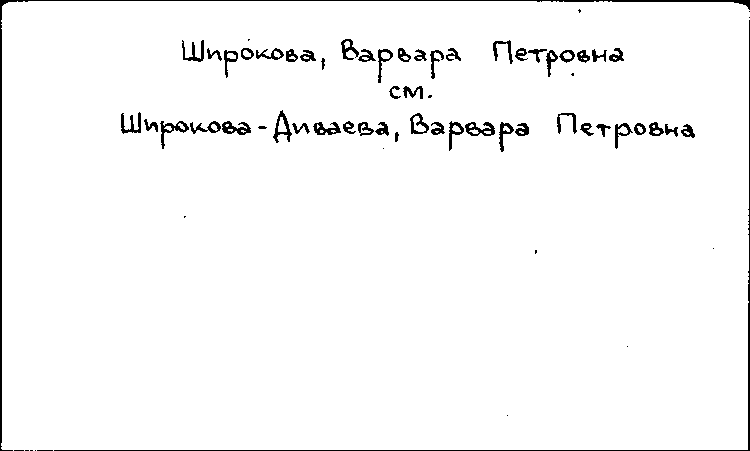 Широкова, Варвара Петровна
см.
Широкова-Диваева, Варвара Петровна